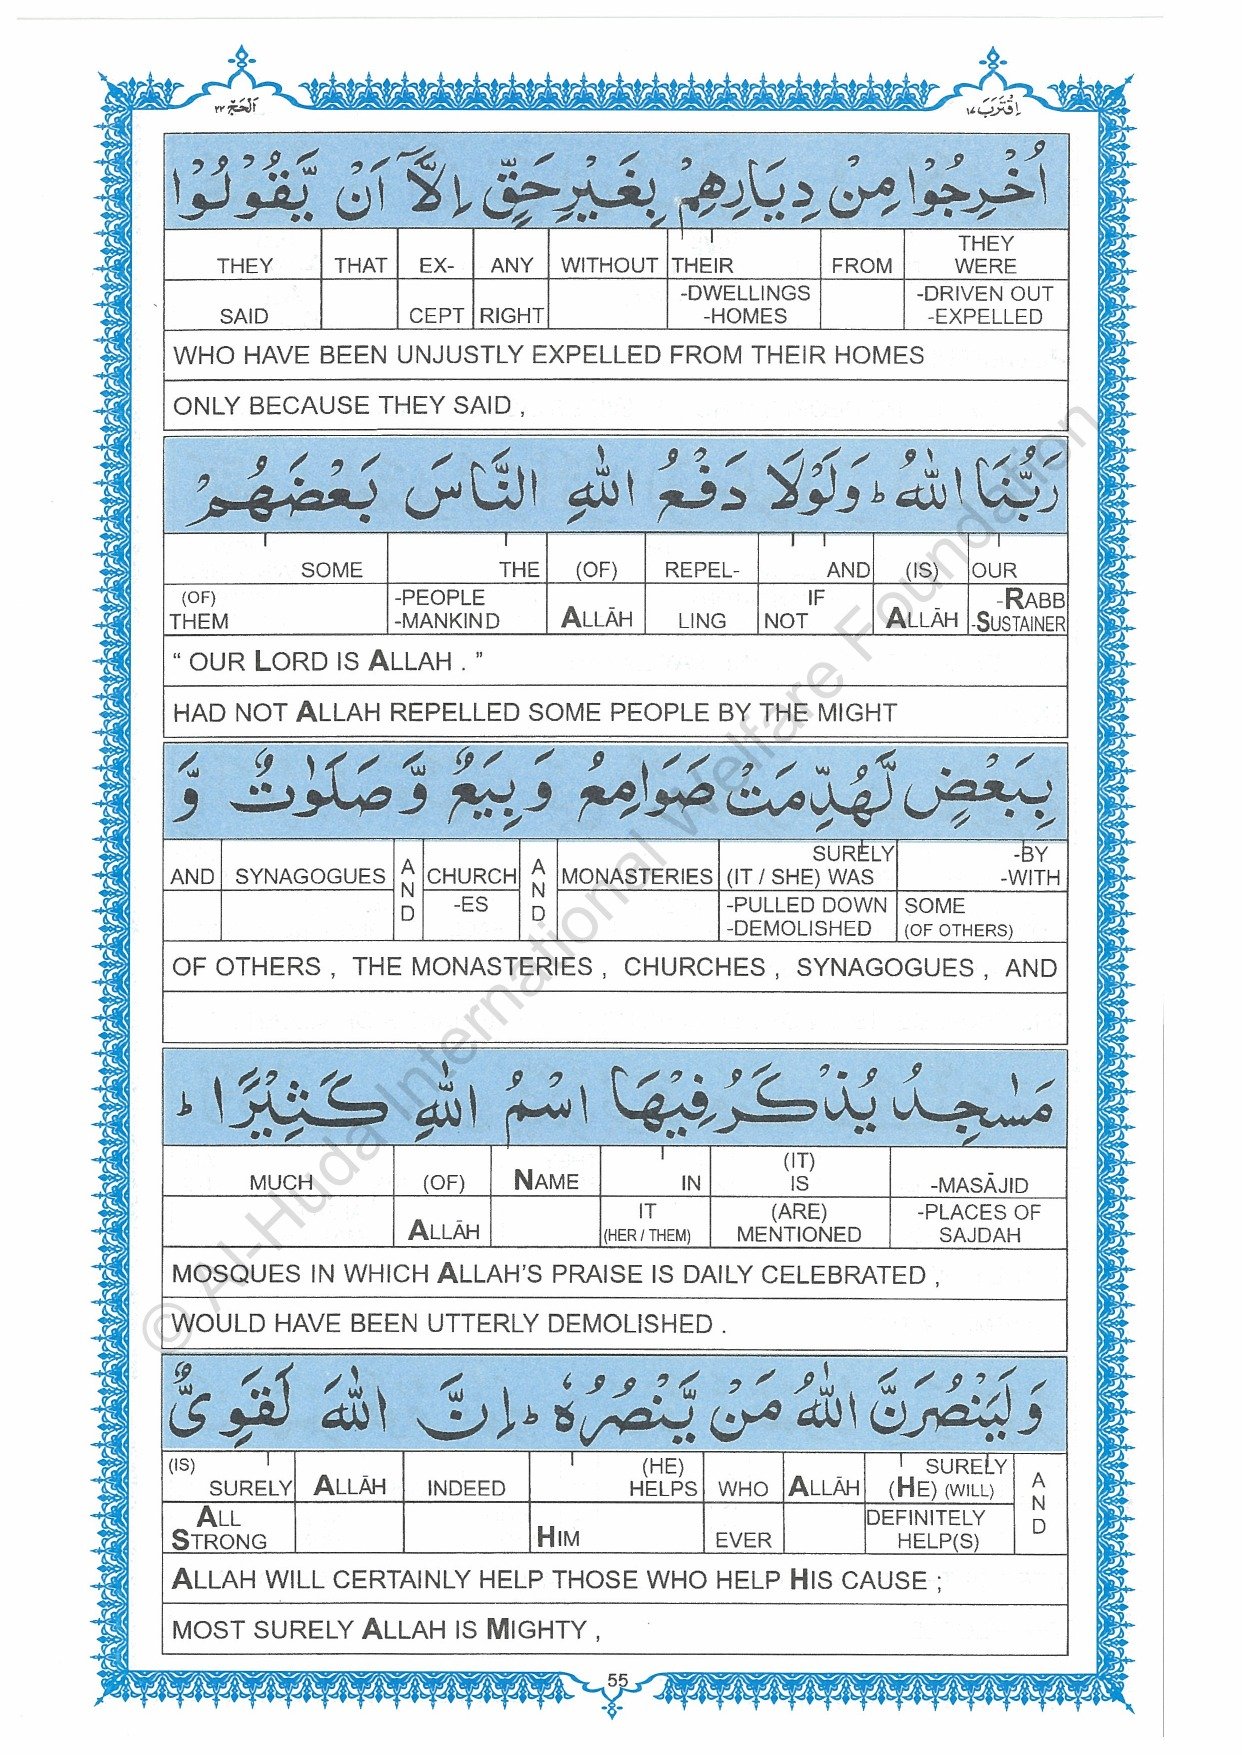 اَلْحَجّ ٢٢
اِقْتَرَبَ ١٧
اُخْرِجُوْا مِنْ دِيَارِهِمْ بِغَيْرِ حَقٍّ اِلَّاۤ اَنْ يَّقُوْلُوْا
THEY THAT EX- ANY WITHOUT THEIR FROM THEY WERE
SAID CEPT RIGHT -DWELLINGS -HOMES -DRIVEN OUT -EXPELLED
WHO HAVE BEEN UNJUSTLY EXPELLED FROM THEIR HOMES
ONLY BECAUSE THEY SAID ,
رَبُّنَا اللّٰهُ ؕ وَلَوْلَا دَفْعُ اللّٰهِ النَّاسَ بَعْضَهُمْ
SOME THE (OF) REPEL- AND (IS) OUR
(OF) THEM -PEOPLE -MANKIND ALLĀH LING NOT IF ALLĀH -RABB -SUSTAINER
“ OUR LORD IS ALLAH . ”
HAD NOT ALLAH REPELLED SOME PEOPLE BY THE MIGHT
بِبَعْضٍ لَّهُدِّمَتْ صَوَامِعُ وَ بِيَعٌ وَّ صَلَوٰتٌ وَّ
AND SYNAGOGUES AND CHURCH AND MONASTERIES SURELY (IT / SHE) WAS -BY -WITH
-ES -PULLED DOWN -DEMOLISHED SOME (OF OTHERS)
OF OTHERS , THE MONASTERIES , CHURCHES , SYNAGOGUES , AND
مَسٰجِدُ يُذْكَرُ فِيْهَا اسْمُ اللّٰهِ كَثِيْرًا ؕ
MUCH (OF) NAME IN (IT) IS -MASĀJID
ALLĀH IT (HER / THEM) (ARE) MENTIONED -PLACES OF SAJDAH
MOSQUES IN WHICH ALLAH’S PRAISE IS DAILY CELEBRATED ,
WOULD HAVE BEEN UTTERLY DEMOLISHED .
وَ لَيَنْصُرَنَّ اللّٰهُ مَنْ يَّنْصُرُهٗ ؕ اِنَّ اللّٰهَ لَقَوِىٌّ
(IS) SURELY ALLĀH INDEED (HE) HELPS WHO ALLĀH SURELY (HE) (WILL) AND
ALL STRONG HIM EVER DEFINITELY HELP(S)
ALLAH WILL CERTAINLY HELP THOSE WHO HELP HIS CAUSE ;
MOST SURELY ALLAH IS MIGHTY ,
55
© Al-Huda International Welfare Foundation